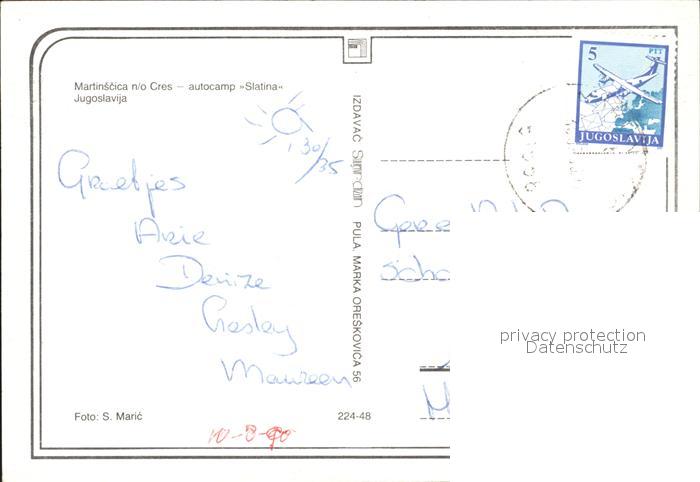 Martinščica n/o Cres – autocamp »Slatina«
Jugoslavija
30/35
Groetjes
Arie
Denize
Chesley
Maureen
Foto: S. Marić
224-48
10-8-90
IZDAVAČ
PULA, MARKA OREŠKOVIĆA 56
5
PTT
JUGOSLAVIJA
privacy protection
Datenschutz